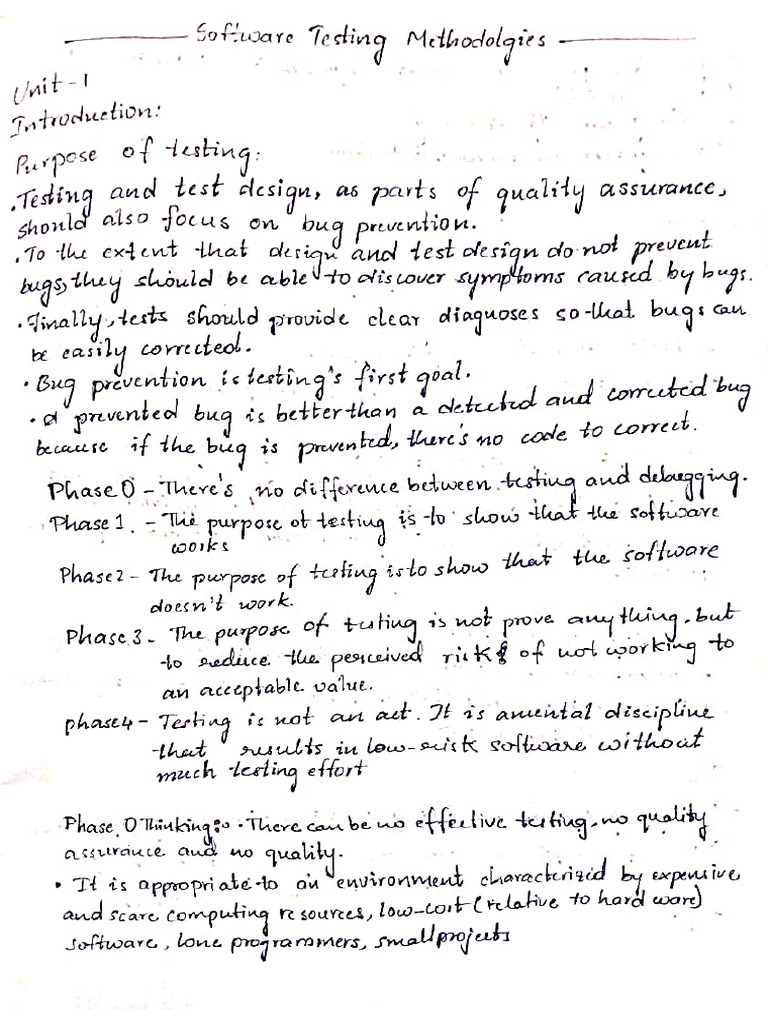 Software Testing Methodolgies
Unit-1
Introduction:
Purpose of testing:
.Testing and test design, as parts of quality assurance,
should also focus on bug prevention.
.To the extent that design and test design do not prevent
bugs, they should be able to discover symptoms caused by bugs.
.Finally, tests should provide clear diagnoses so that bugs can
be easily corrected.
.Bug prevention is testing's first goal.
.a prevented bug is better than a detected and corrected bug
because if the bug is prevented, there's no code to correct.
Phase 0 - There's no difference between testing and debugging.
Phase 1. - The purpose of testing is to show that the software
works
Phase 2 - The purpose of testing is to show that the software
doesn't work.
Phase 3 - The purpose of testing is not prove anything, but
to reduce the perceived risk of not working to
an acceptable value.
phase 4 - Testing is not an act. It is a mental discipline
that results in low-risk software without
much testing effort
Phase 0 Thinking:- .There can be no effective testing, no quality
assurance and no quality.
. It is appropriate to an environment characterized by expensive
and scare computing resources, low-cost (relative to hard ware)
software, lone programmers, small projects